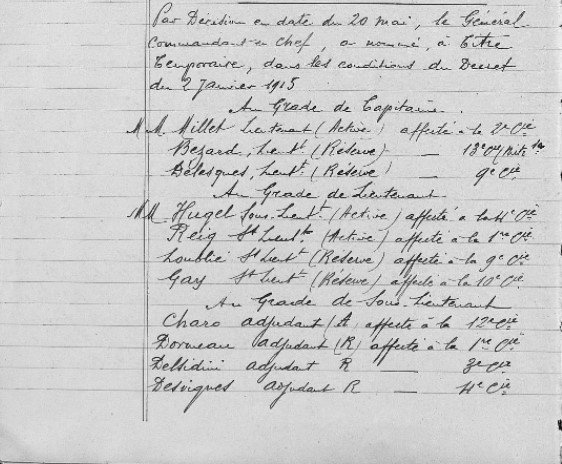 Par Décision en date du 20 mai, le Général
Commandant en chef, a nommé, à titre
temporaire, dans les conditions du Décret
du 2 Janvier 1915
Au Grade de Capitaine.
M.M. Millet Lieutenant (Active) affecté à la 2e Cie
Bezard, Lieutt (Réserve) — 13e Cie
Delesques, Lieutt (Réserve) — 9e Cie
Au Grade de Lieutenant
MM. Hugel Sous-Lieutt (Active) affecté à la 4e Cie
Reig St Lieutt (Active) affecté à la 1re Cie
Loublié St Lieutt (Réserve) affecté à la 9e Cie
Gary St Lieutt (Réserve) affecté à la 10e Cie
Au Grade de Sous-Lieutenant
Charo adjudant (A) affecté à la 12e Cie
Dorneau adjudant (R) affecté à la 1re Cie
adjudant R — 3e Cie
Desvignes adjudant R — 4e Cie